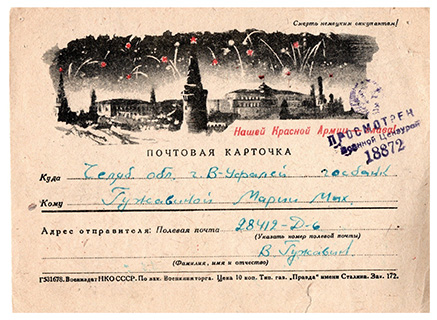 Смерть немецким оккупантам!
Нашей Красной Армии — слава!
ПРОСМОТРЕНО
Военной Цензурой
18872
ПОЧТОВАЯ КАРТОЧКА
Куда Челяб. обл. г. В-Уфалей госбанк
Кому Гужавиной Марии Мих.
Адрес отправителя: Полевая почта 28412-Д-6
(Указать номер полевой почты)
В Гужавин
(Фамилия, имя и отчество)
Г531678. Воениздат НКО СССР. По зак. Военкниготорга. Цена 10 коп. Тип. газ. „Правда“ имени Сталина. Зак. 172.